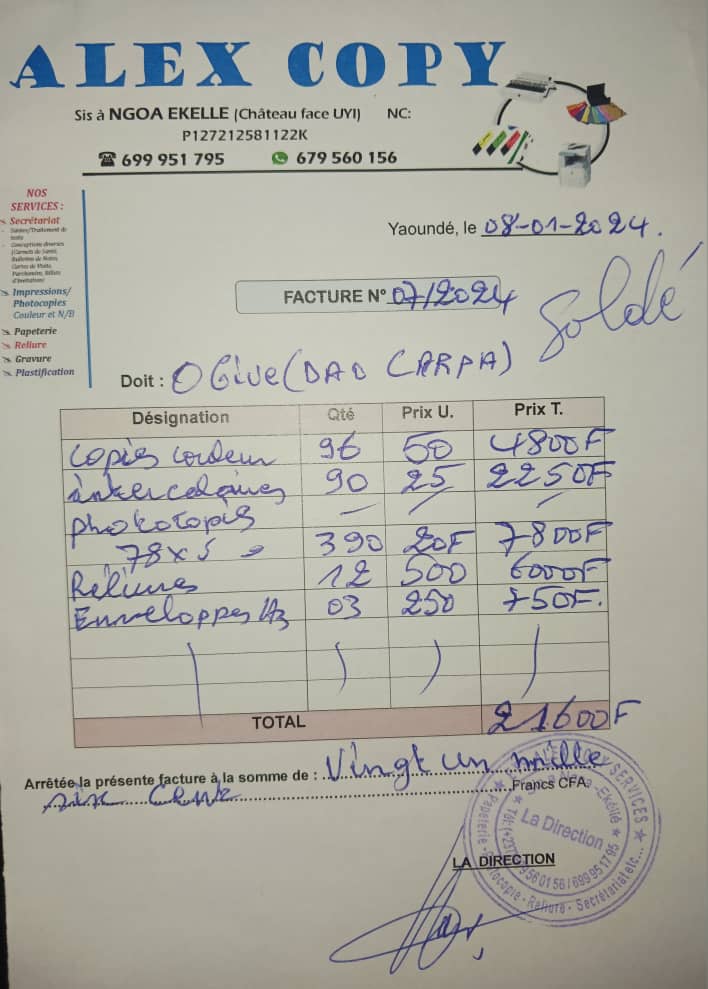 ALEX COPY
Sis à NGOA EKELLE (Château face UYI) NC:
P127212581122K
☎ 699 951 795 679 560 156
NOS
SERVICES :
Secrétariat
- Saisies/Traitement de
texte
- Conceptions diverses
(Carnets de Santé,
Bulletins de Notes,
Cartes de Visite,
Parchemins, Billets
d'invitation)
Impressions/
Photocopies
Couleur et N/B
Papeterie
Reliure
Gravure
Plastification
Yaoundé, le 08-01-2024.
FACTURE N° 07/2024
Soldé
Doit : OGive (DAO CARPA)
Désignation Qté Prix U. Prix T.
copies couleur 96 50 4800F
intercalaires 90 25 2250F
photocopies — / /
78x5 390 20F 7800F
Réliures 12 500 6000F
Enveloppes A3 03 250 750F.
TOTAL 21600F
Arrêtée la présente facture à la somme de : Vingt un mille
six cent Francs CFA.
LA DIRECTION
La Direction
Papeterie - Photocopie - Reliure - Secrétariat etc...